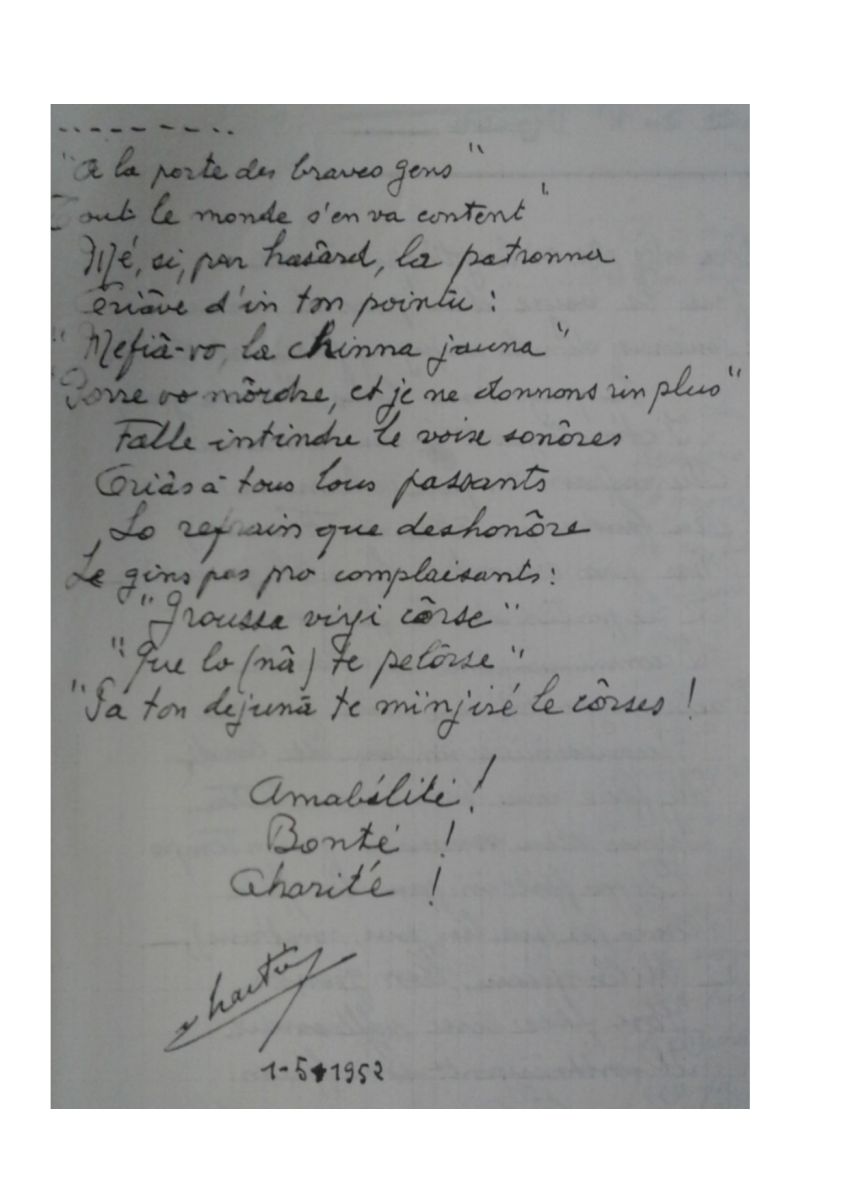 "A la porte des braves gens"
Tout le monde s'en va content"
Mé, si, par hasârd, la patronna
Criâve d'in ton pointu :
"Mefiâ-vo, la chinna jauna"
"Porre vo môrdre, et je ne donnons rin plus"
Falle intindre le voix sonôres
Criâs à tous lous passants
Lo refrain que deshonôre
Le gins pas pro complaisants :
"Groussa viyi côrse"
"Que lo (nâ) te pelôrse"
"Pa ton dejunâ te minjisé le côrses !
Amabilité !
Bonté !
Charité !
1-5-1952